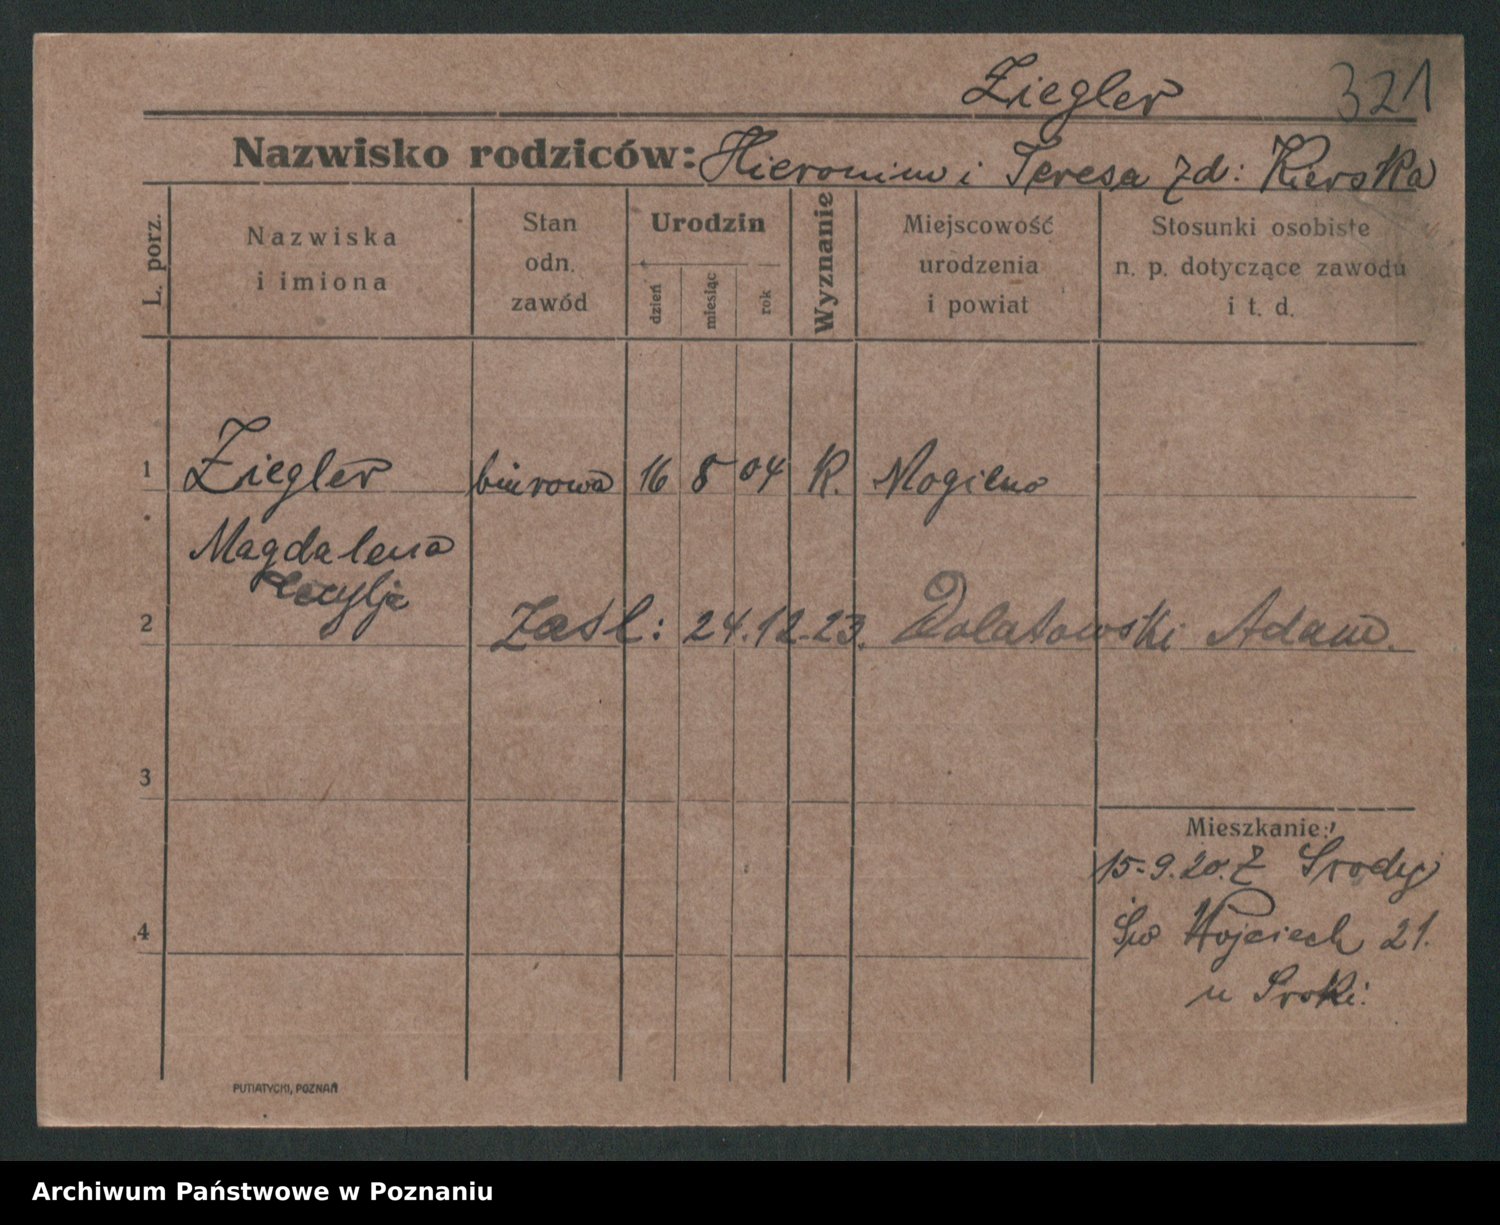 Ziegler 321
Nazwisko rodziców: Hieronim i Teresa zd: Kierska
L. porz.
Nazwiska
i imiona
Stan
odn.
zawód
Urodzin
dzień
miesiąc
rok
Wyznanie
Miejscowość
urodzenia
i powiat
Stosunki osobiste
n. p. dotyczące zawodu
i t. d.
1 Ziegler biurowa 16 8 04 R. Mogilno
Magdalena
Cecylja
2 Zaśl: 24.12.23. Dolatowski Adam.
3
Mieszkanie:
15.9.20. Z Środy
Św Wojciech 21.
4
u Sroki.
PUTIATYCKI, POZNAŃ
Archiwum Państwowe w Poznaniu